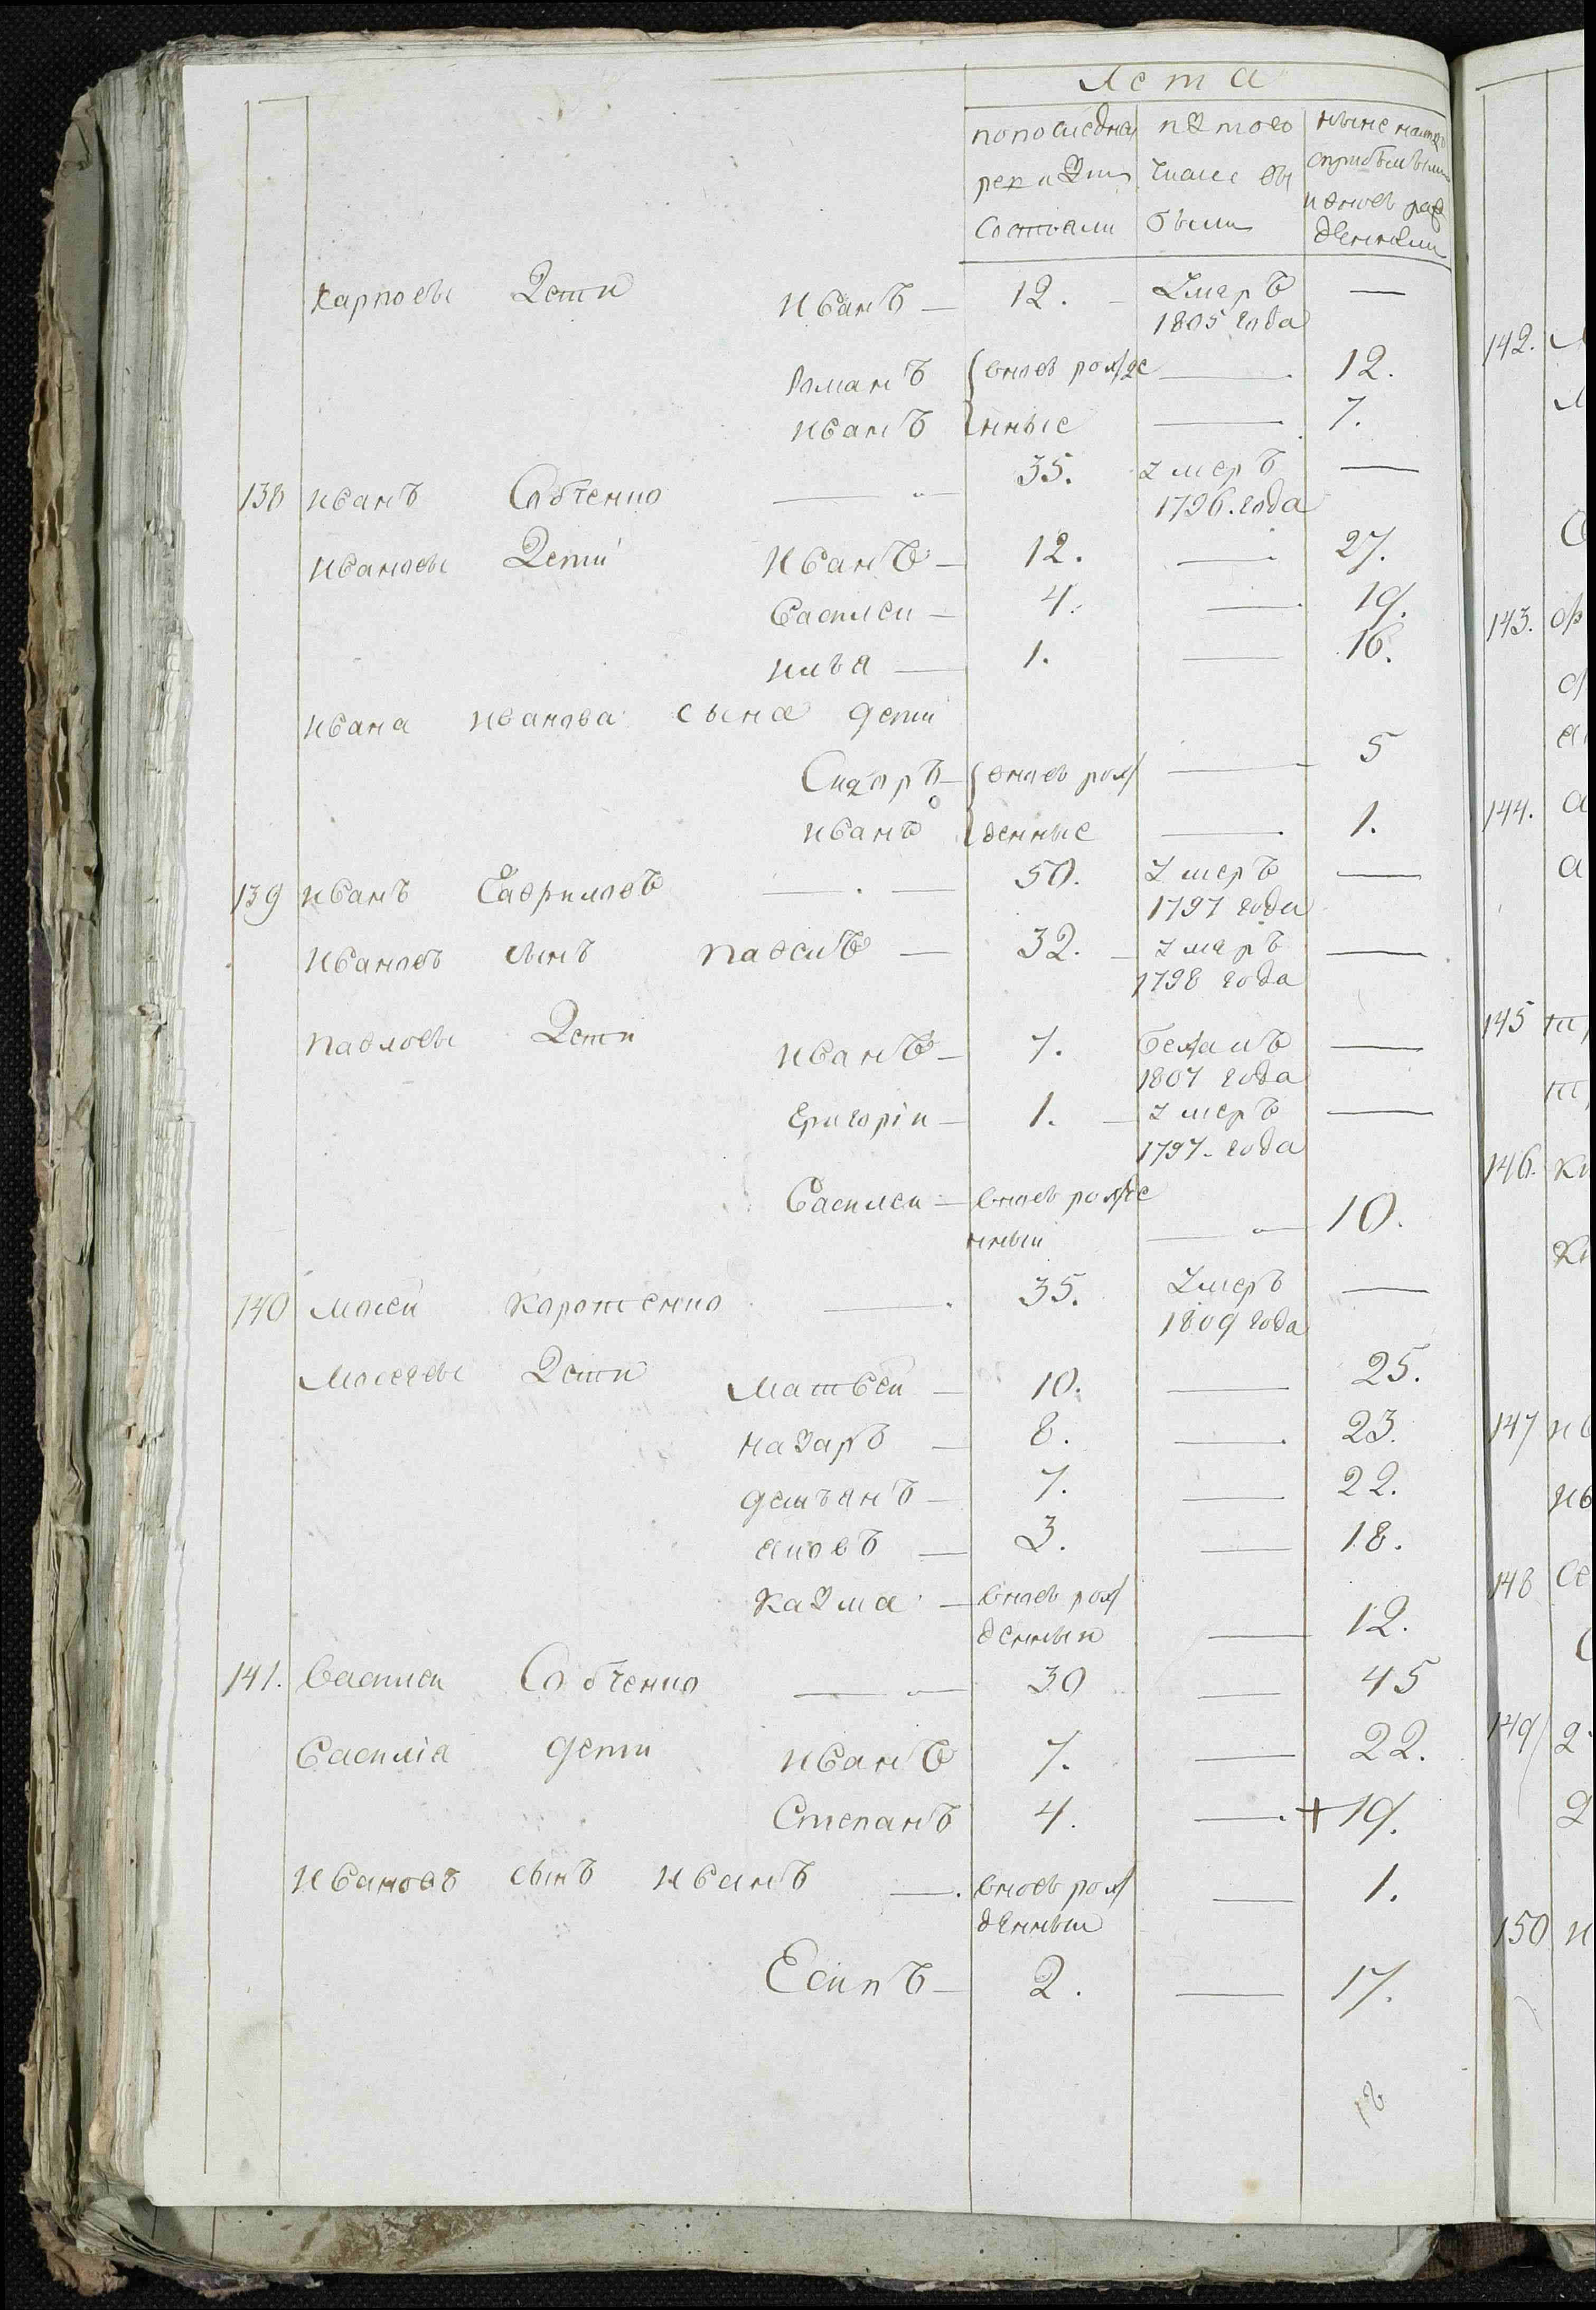 Лета
по последней из того ныне налицо
ревизии числе вы с прибылыми
состояли были и вновь рож
денными
Карповы Дети Иванъ — 12. Умеръ —
1805 года
Романъ вновь рожде — 12.
Иванъ нные — 7.
138 Иванъ Собченко — 35. умеръ —
1796. года
Ивановы Дети Иванъ — 12. — 27.
Василеи — 4. — 19.
Илья — 1. — 16.
Ивана Иванова сына дети
Сидоръ — вновь рож — 5
Иванъ денные — 1.
139 Иванъ Гавриловъ — 50. Умеръ —
1797 года
Ивановъ сынъ Павелъ — 32. — умеръ —
1798 года
Павловы Дети Иванъ — 7. бежалъ —
1807 года
Григоріи — 1. — умеръ —
1797. года
Василеи — вновь рожде
нныи — 10.
140 Мосеи Коротченко — 35. Умеръ —
1809 года
Мосеевы Дети Матвеи — 10. — 25.
Назаръ — 8. — 23.
Демьянъ — 7. — 22.
Яковъ — 3. — 18.
Казма — вновь рож
денныи — 12.
141. Василеи Собченко — 30 — 45
Василія дети Иванъ 7. — 22.
Степанъ 4. — + 19.
Ивановъ сынъ Иванъ — вновь рож — 1.
денныи
Есипъ — 2. — 17.
142.
143.
144.
145
146.
147
148
149
150